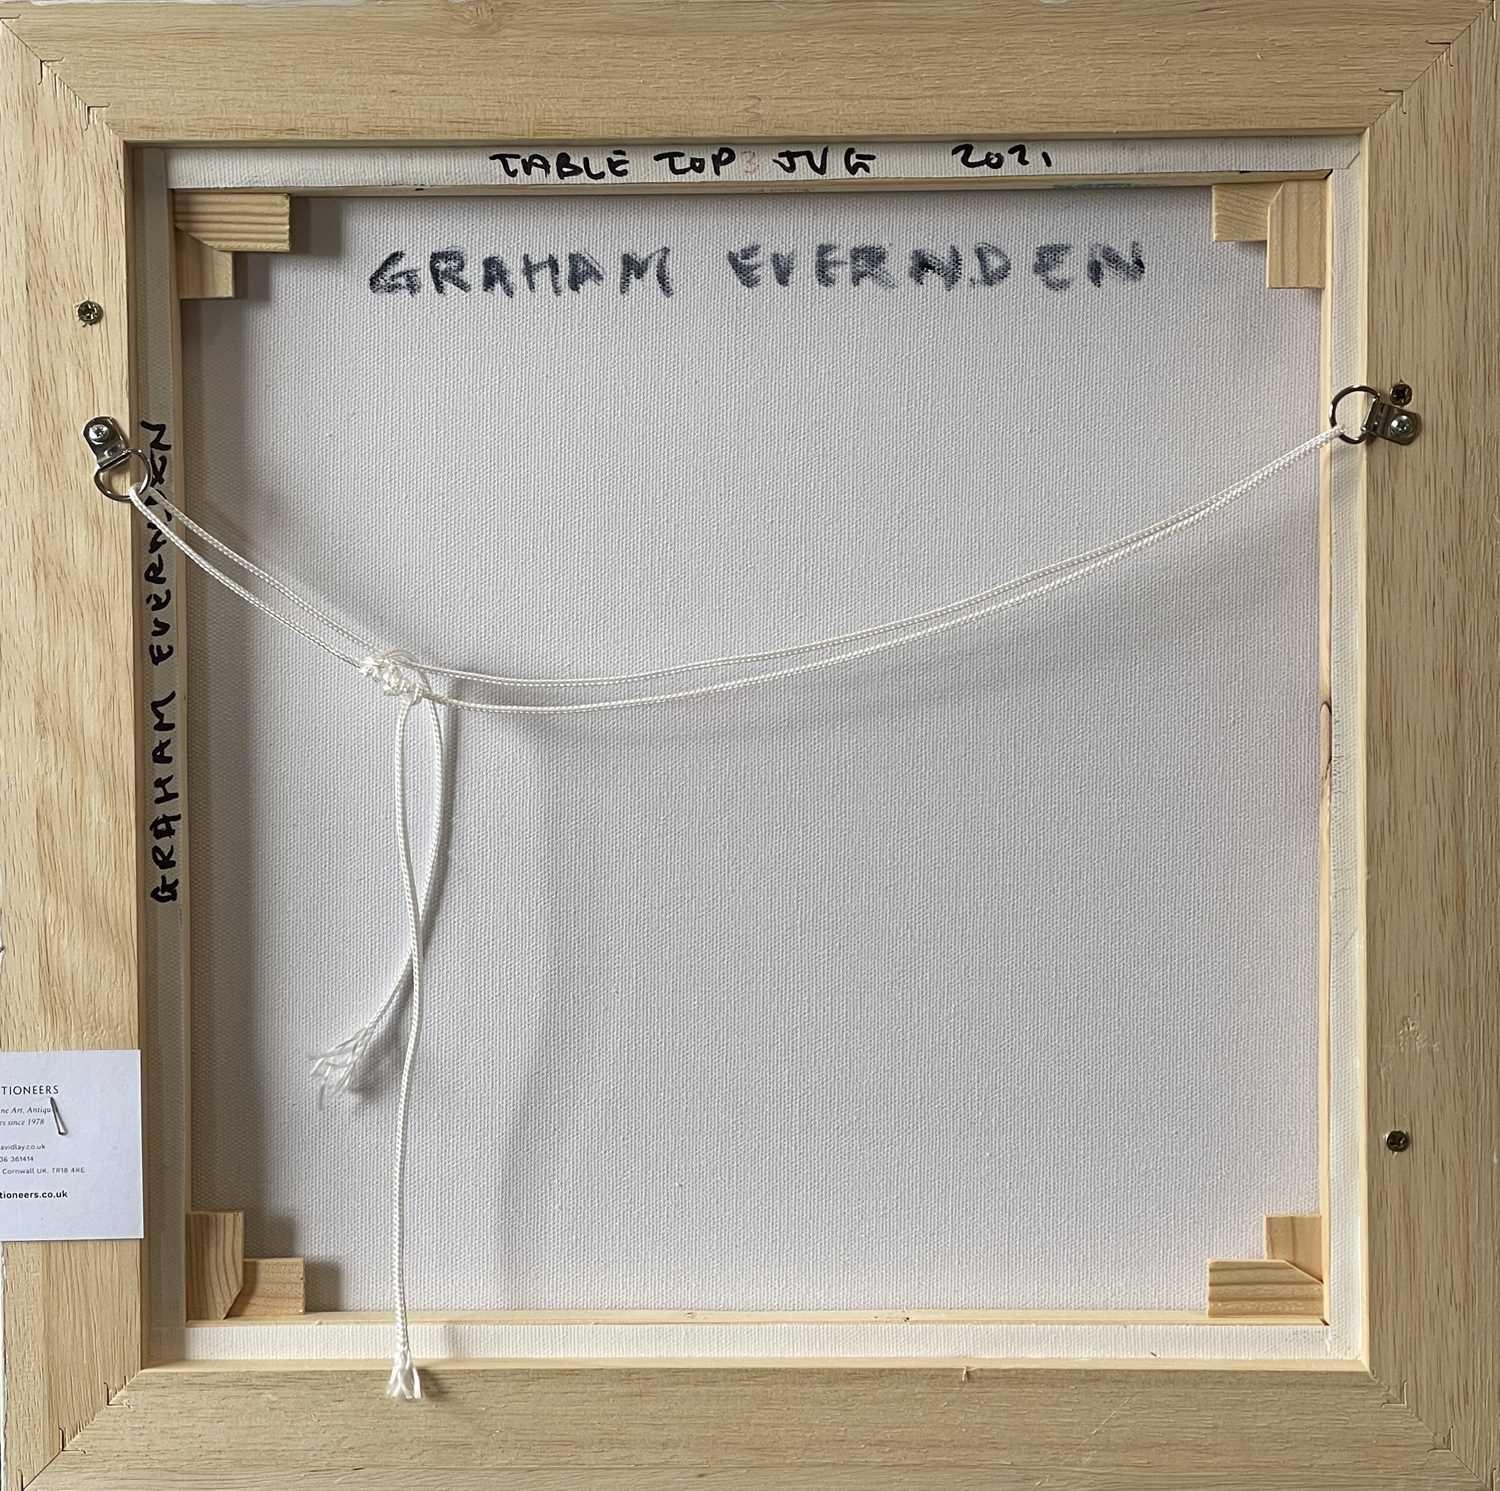 3
TABLE TOP 3 JUG 2021
GRAHAM EVERNDEN
GRAHAM EVERNDEN
TIONEERS
ne Art, Antiqu
rs since 1978
avidlay.co.uk
36 361414
Cornwall UK. TR18 4RE
tioneers.co.uk